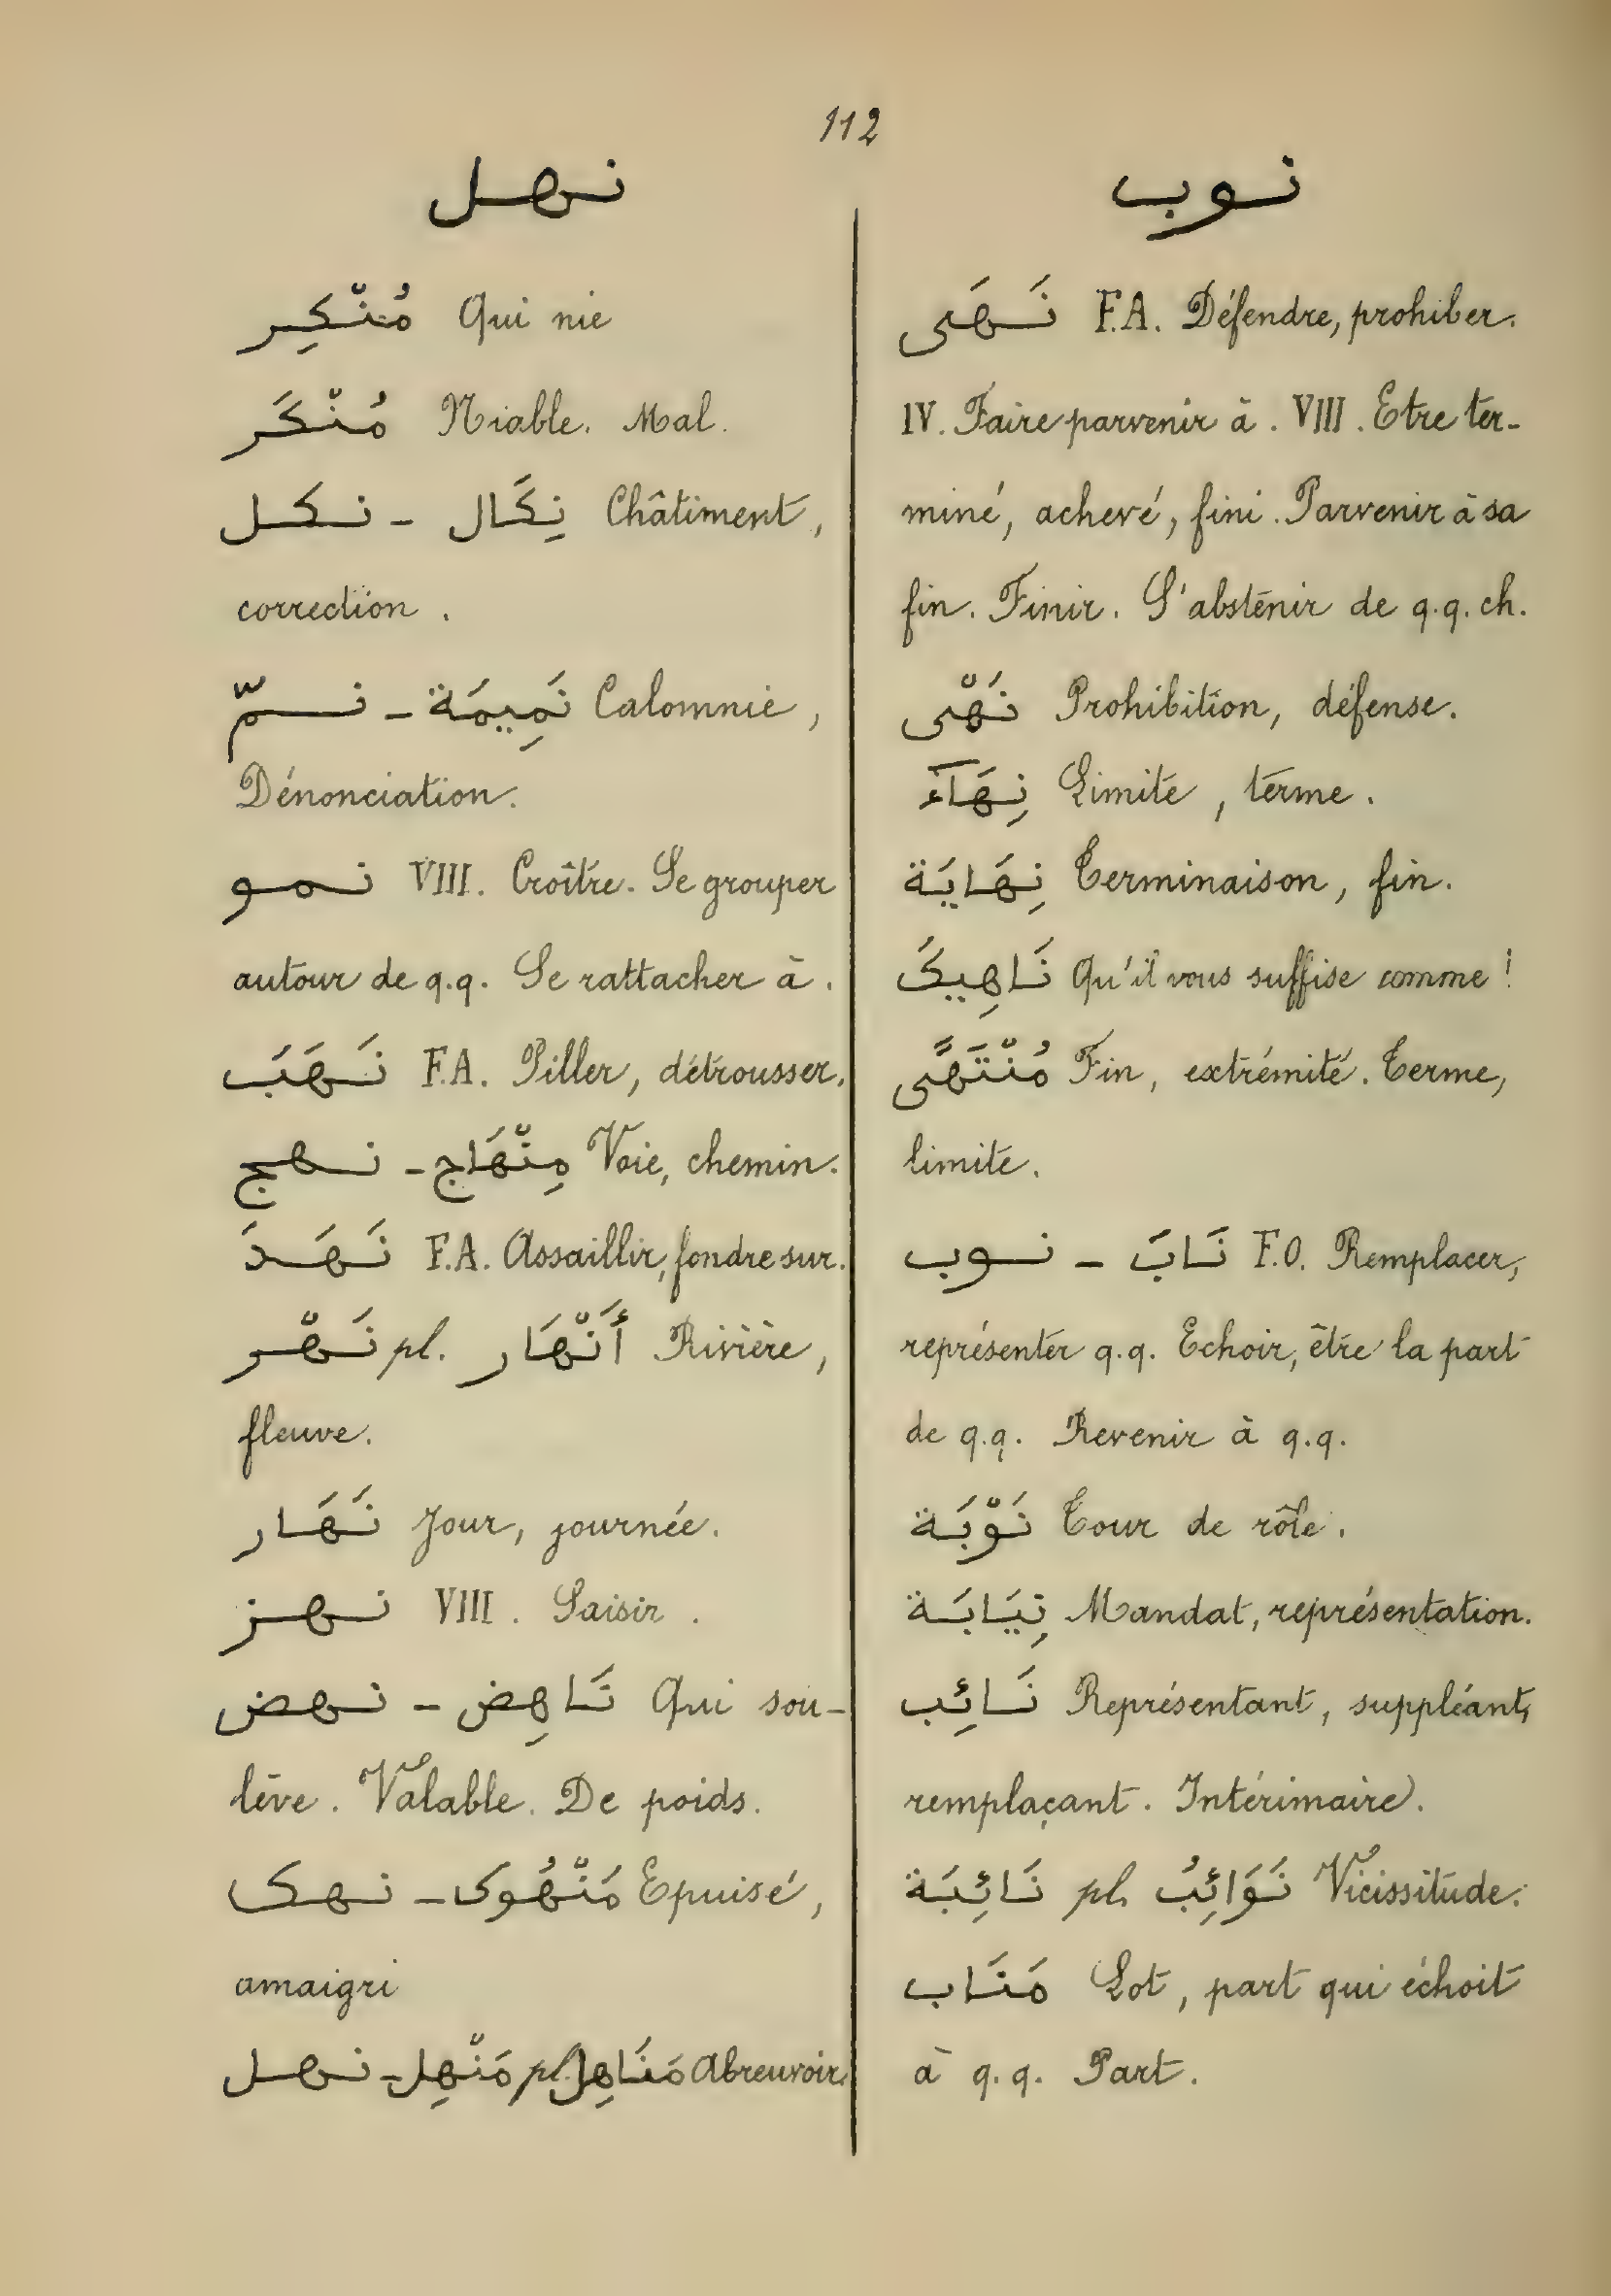 112
نهل
مُنْكِر Qui nie
مُنْكَر Niable. Mal.
نكل - نِكَال Châtiment,
correction.
نمّ - نَمِيمَة Calomnie,
Dénonciation.
نمو VIII. Croître. Se grouper
autour de q.q. Se rattacher à.
نَهَبَ F.A. Piller, détrousser.
نهج - مِنْهَاج Voie, chemin.
نَهَدَ F.A. Assaillir, fondre sur.
نَهْر pl. أَنْهَار Rivière,
fleuve.
نَهَار Jour, journée.
نهز VIII. Saisir.
نهض - نَاهِض Qui sou-
lève. Valable. De poids.
نهك - مَنْهُوك Epuisé,
amaigri
نهل - مَنْهِل pl. مَنَاهِل Abreuvoir.
نوب
نَهَى F.A. Défendre, prohiber.
IV. Faire parvenir à. VIII. Etre ter-
miné, achevé, fini. Parvenir à sa
fin. Finir. S'abstenir de q.q. ch.
نَهْى Prohibition, défense.
نِهَآء Limite, terme.
نِهَايَة Terminaison, fin.
نَاهِيكَ Qu'il vous suffise comme!
مُنْتَهًى Fin, extrémité. Terme,
limite.
نوب - نَابَ F.O. Remplacer,
représenter q.q. Echoir, être la part
de q.q. Revenir à q.q.
نَوْبَة Tour de rôle.
نِيَابَة Mandat, représentation.
نَائِب Représentant, suppléant,
remplaçant. Intérimaire.
نَائِبَة pl. نَوَائِبُ Vicissitude.
مَنَاب Lot, part qui échoit
à q.q. Part.